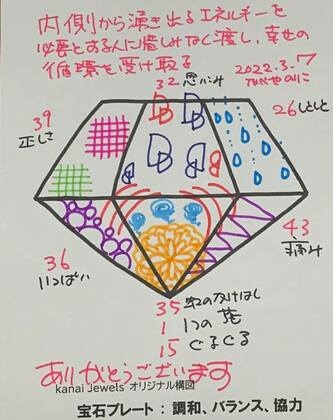 内側から湧き出るエネルギーを
必要とする人に惜しみなく渡し、幸せの
循環を受け取る
2022.3.7
32 思いやみ
26 しとしと
39
正しさ
43
痛み
36
いっぱい
35
1 1つの花
15 ぐるぐる
ありがとうございます
kanai Jewels オリジナル構図
宝石プレート：調和、バランス、協力